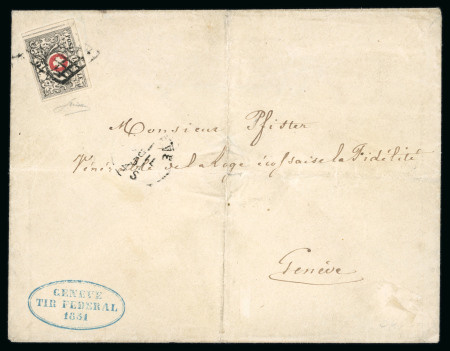 Monsieur Pfister
Vénérable de la Loge écossaise la Fidélité
Genève
GENEVE
TIR FEDERAL
1851